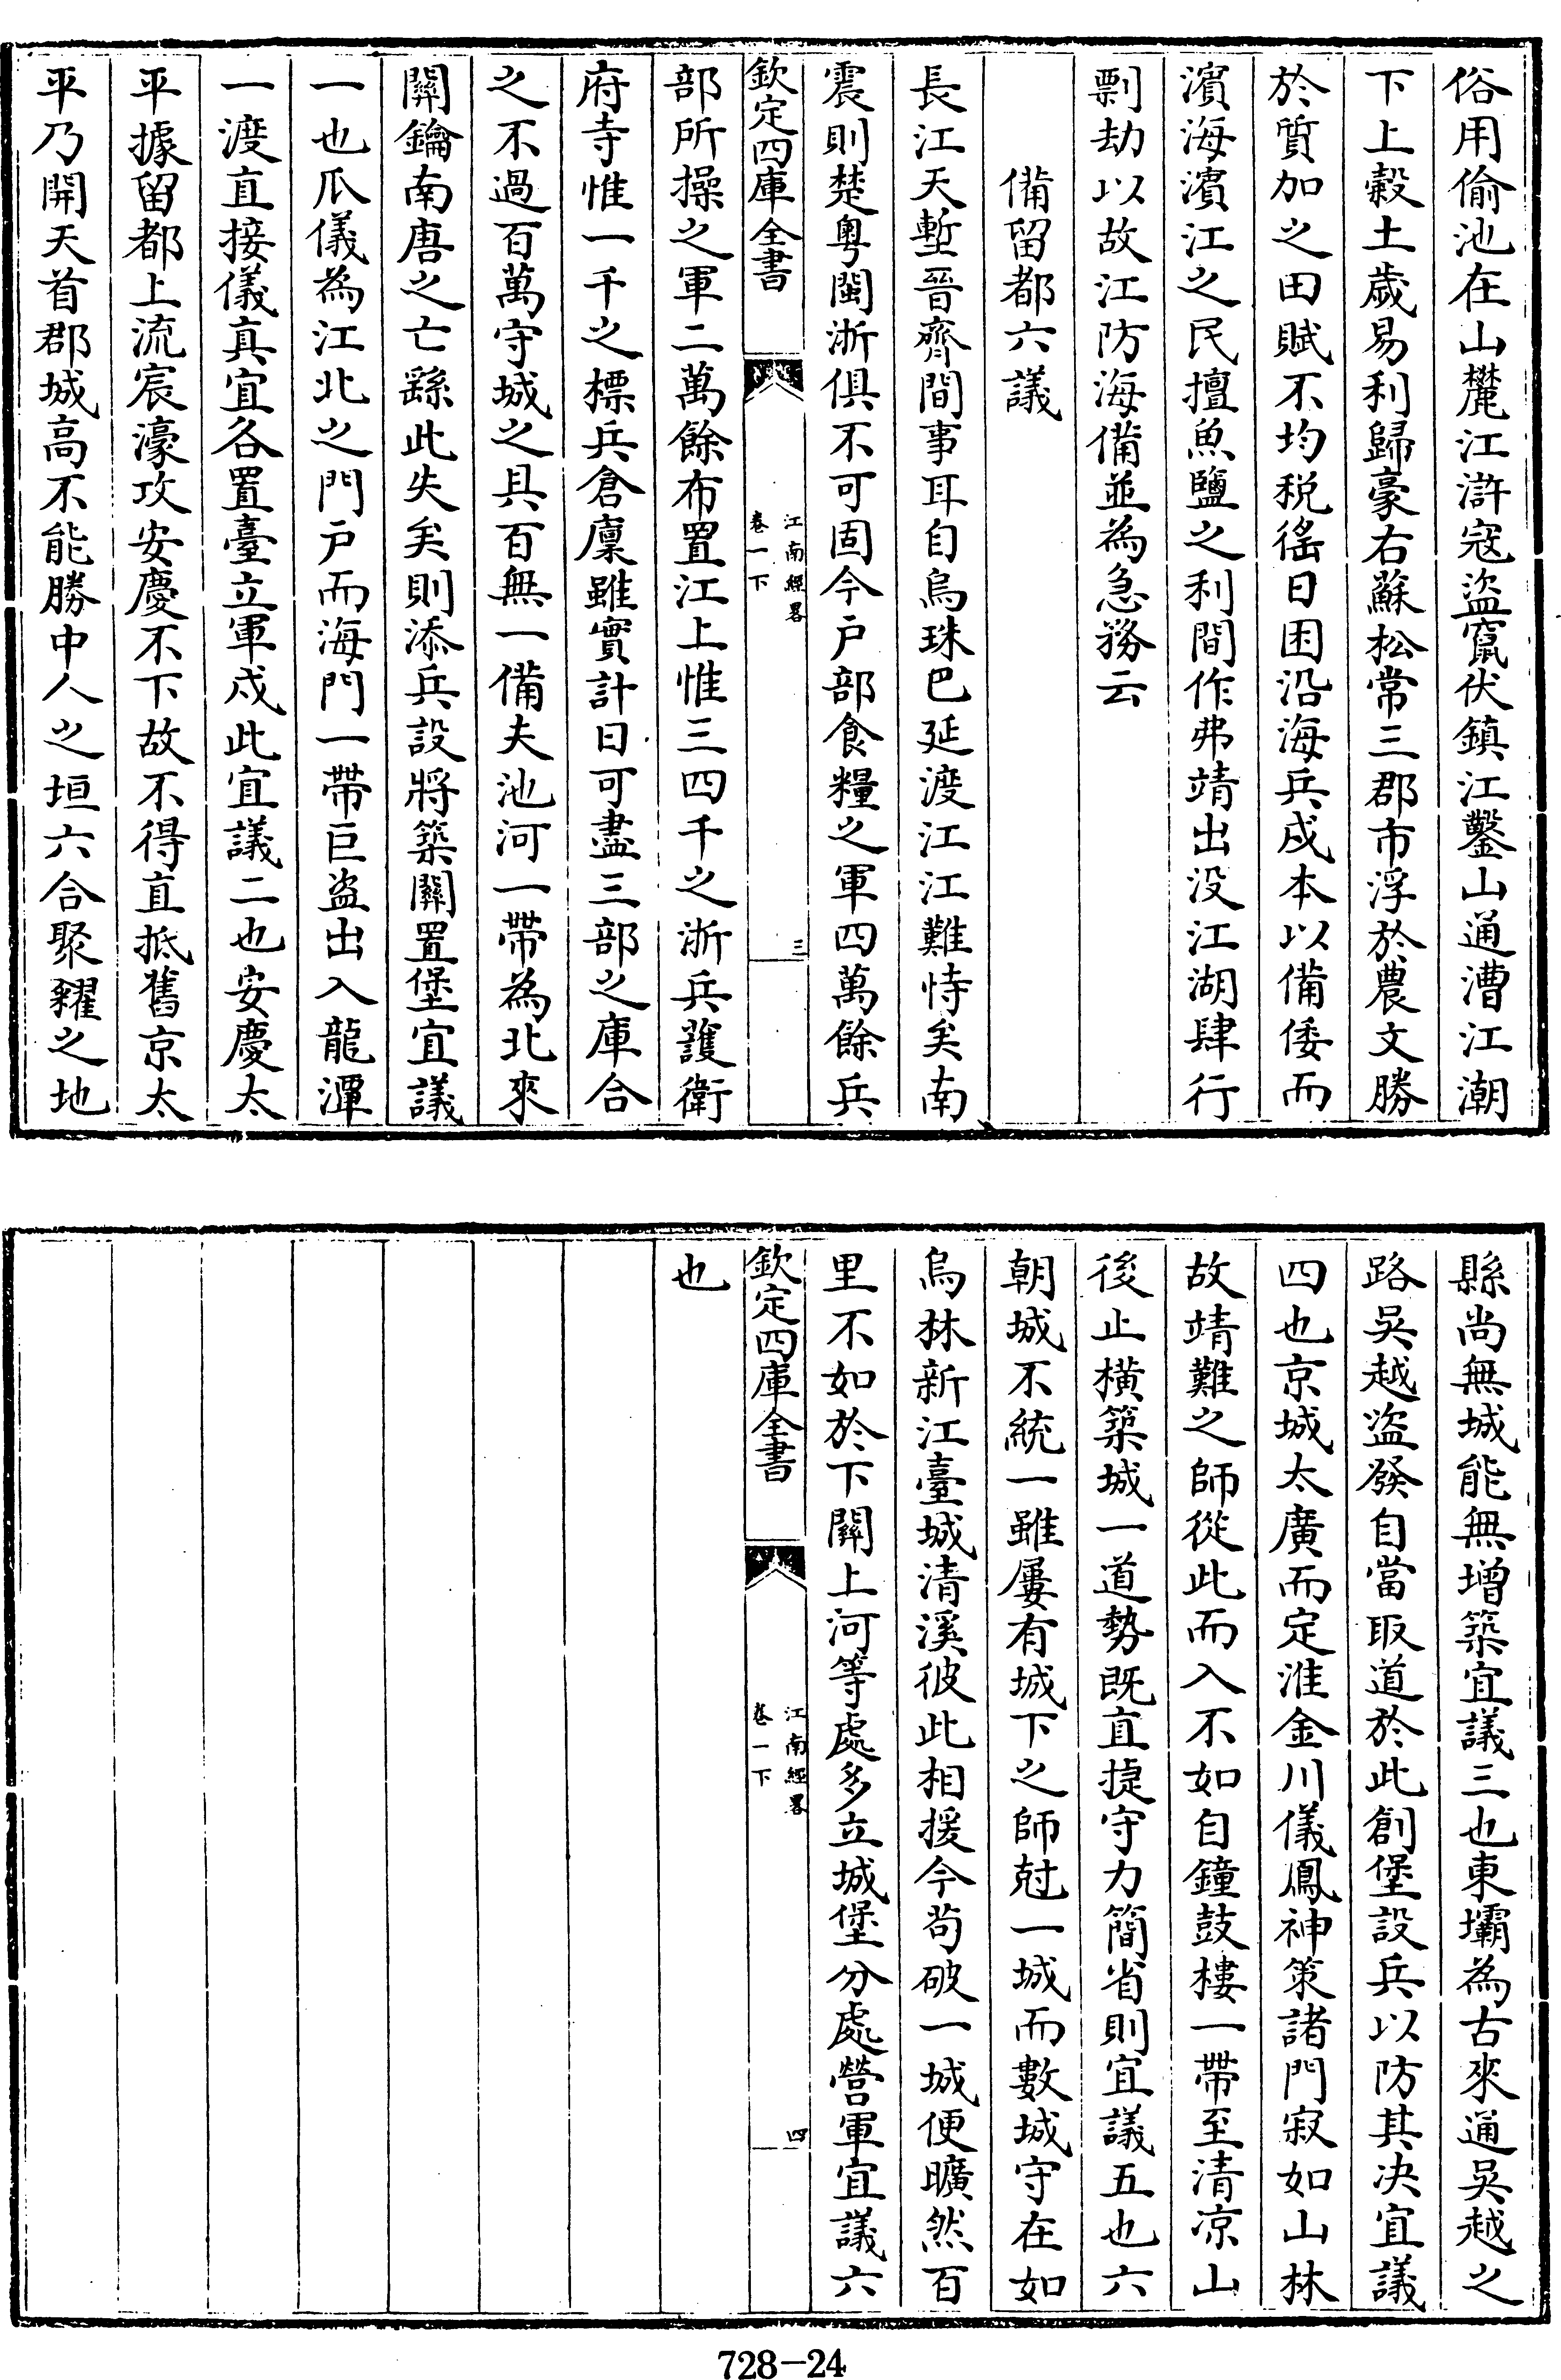 俗用偷池在山麓江滸寇盜竄伏鎮江鑿山通漕江潮
下上穀土歲易利歸豪右蘇松常三郡市浮於農文勝
於質加之田賦不均税徭日困沿海兵戍本以備倭而
濱海濱江之民擅魚鹽之利間作弗靖出没江湖肆行
剽劫以故江防海備並為急務云
備留都六議
長江天塹晉齊間事耳自烏珠巴延渡江江難恃矣南
震則楚粵閩浙俱不可固今户部食糧之軍四萬餘兵
欽定四庫全書
江南經畧
卷一下
三
部所操之軍二萬餘布置江上惟三四千之浙兵護衛
府寺惟一千之標兵倉廩雖實計日可盡三部之庫合
之不過百萬守城之具百無一備夫池河一帶為北來
關鑰南唐之亡繇此失矣則添兵設將築關置堡宜議
一也瓜儀為江北之門户而海門一帶巨盗出入龍潭
一渡直接儀真宜各置臺立軍戍此宜議二也安慶太
平據留都上流宸濠攻安慶不下故不得直抵舊京太
平乃開天首郡城高不能勝中人之垣六合聚糴之地
縣尚無城能無增築宜議三也東壩為古來通吳越之
路吳越盗發自當取道於此創堡設兵以防其决宜議
四也京城太廣而定淮金川儀鳳神策諸門寂如山林
故靖難之師從此而入不如自鐘鼓樓一帶至清凉山
後止横築城一道勢既直㨗守力簡省則宜議五也六
朝城不統一雖屢有城下之師尅一城而數城守在如
烏林新江臺城清溪彼此相援今苟破一城便曠然百
里不如於下關上河等處多立城堡分處營軍宜議六
欽定四庫全書
江南經畧
卷一下
四
也
728-24